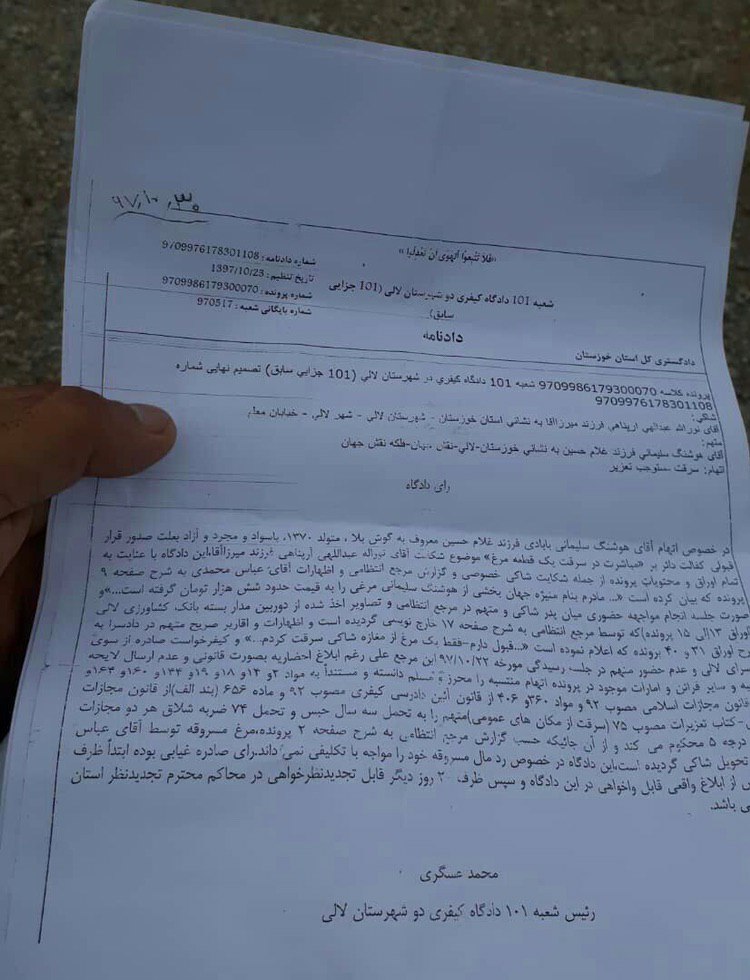 ۹۷,۱۰,۳۰
«فلا تتبعوا الهوی ان تعدلوا»
شماره دادنامه : 9709976178301108
تاریخ تنظیم : 1397/10/23
شماره پرونده : 9709986179300070
شماره بایگانی شعبه : 970517
شعبه 101 دادگاه کیفری دو شهرستان لالی (101 جزایی سابق)
دادنامه
دادگستری کل استان خوزستان
پرونده کلاسه 9709986179300070 شعبه 101 دادگاه کیفری دو شهرستان لالی (101 جزایی سابق) تصمیم نهایی شماره
9709976178301108
شاکی:
آقای نورالله عبدالهی آرپناهی فرزند میرزاآقا به نشانی استان خوزستان - شهرستان لالی - شهر لالی - خیابان معلم
متهم:
آقای هوشنگ سلیمانی فرزند غلام حسین به نشانی خوزستان-لالی-نقش جهان-فلکه نقش جهان
اتهام: سرقت مستوجب تعزیر
رای دادگاه
در خصوص اتهام آقای هوشنگ سلیمانی بابادی فرزند غلام حسین معروف به گوش بلا ، متولد ۱۳۷۰، باسواد و مجرد و آزاد بعلت صدور قرار
قبولی کفالت دائر بر «مباشرت در سرقت یک قطعه مرغ» موضوع شکایت آقای نوراله عبداللهی آرپناهی فرزند میرزاآقا،این دادگاه با عنایت به
تمام اوراق و محتویات پرونده از جمله شکایت شاکی خصوصی و گزارش مرجع انتظامی و اظهارات آقای: عباس محمدی به شرح صفحه ۹
پرونده که بیان کرده است «... مادرم بنام منیژه جهان بخشی از هوشنگ سلیمانی مرغی را به قیمت حدود شش هزار تومان گرفته است...»و
صورت جلسه انجام مواجهه حضوری میان پدر شاکی و متهم در مرجع انتظامی و تصاویر اخذ شده از دوربین مدار بسته بانک، کشاورزی لالی
اوراق ۱۳الی ۱۵ پرونده)که توسط مرجع انتظامی به شرح صفحه ۱۷ خارج نویسی گردیده است و اظهارات و اقاریر صریح متهم در دادسرا به
ح اوراق ۳۱ و ۴۰ پرونده که اعلام نموده است «...قبول دارم-فقط یک مرغ از مغازه شاکی سرقت کردم...» و کیفرخواست صادره از سوی
سرای لالی و عدم حضور متهم در جلسه رسیدگی مورخه ۹۷/۱۰/۲۲ این مرجع علی رغم ابلاغ احضاریه بصورت قانونی و عدم ارسال لایحه
سه و سایر قرائن و امارات موجود در پرونده اتهام منتسبه را محرز و مسلم دانسته و مستنداً به مواد ۲و ۱۴و ۱۸و ۱۹و ۱۴۴و ۱۶۰و ۱۶۴و
قانون مجازات اسلامی مصوب ۹۲ و مواد ۳۶۰و ۴۰۶ از قانون آئین دادرسی کیفری مصوب ۹۲ و ماده ۶۵۶ (بند الف)از قانون مجازات
- کتاب تعزیرات مصوب ۷۵ (سرقت از مکان های عمومی)متهم را به تحمل سه سال حبس و تحمل ۷۴ ضربه شلاق هر دو مجازات
درجه ۵ محکوم می کند و از آن جائیکه حسب گزارش مرجع انتظامی به شرح صفحه ۲ پرونده،مرغ مسروقه توسط آقای عباس
تحویل شاکی گردیده است،این دادگاه در خصوص رد مال مسروقه خود را مواجه با تکلیفی نمی داند.رای صادره غیابی بوده ابتدأ ظرف
س از ابلاغ واقعی قابل واخواهی در این دادگاه و سپس ظرف ۲۰ روز دیگر قابل تجدیدنظرخواهی در محاکم محترم تجدیدنظر استان
ی باشد.
محمد عسگری
رئیس شعبه ۱۰۱ دادگاه کیفری دو شهرستان لالی